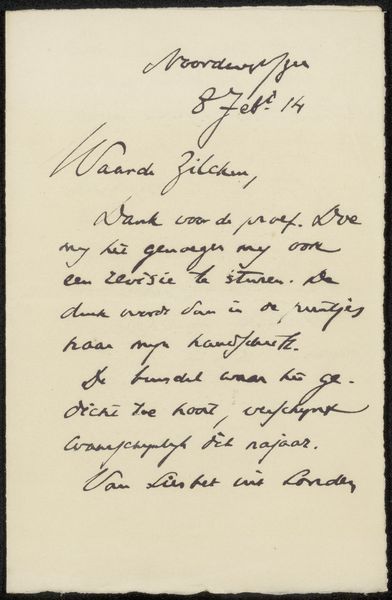 Noordwijk/Zee
8 Febr. 14
Waarde Zilcken,
Dank voor de proef. Doe
my het genoegen my ook
een revisie te sturen. De
druk wordt dan in de puntjes
naar myn handschrift.
De bundel waar het ge-
dicht toe hoort, verschynt
waarschynlyk dit najaar.
Van Liesbet uit Londen